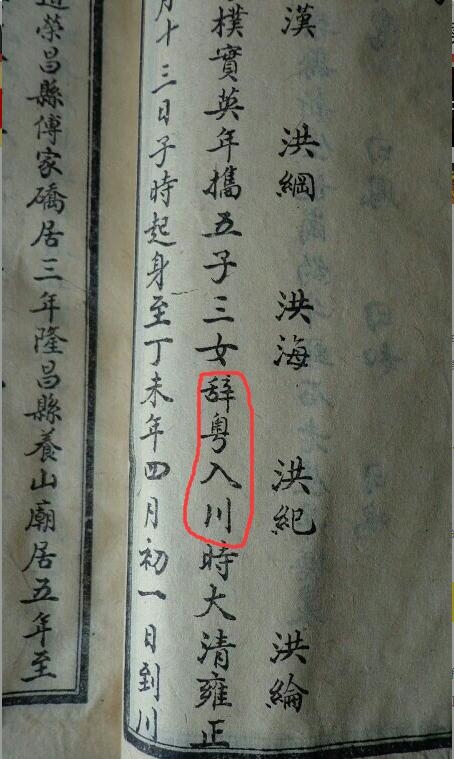 漢 洪綱 洪海 洪紀 洪綸
樸實英年攜五子三女辞粤入川時大清雍正
月十三日子時起身至丁未年四月初一日到川
榮昌縣傅家礄居三年隆昌縣養山廟居五年至